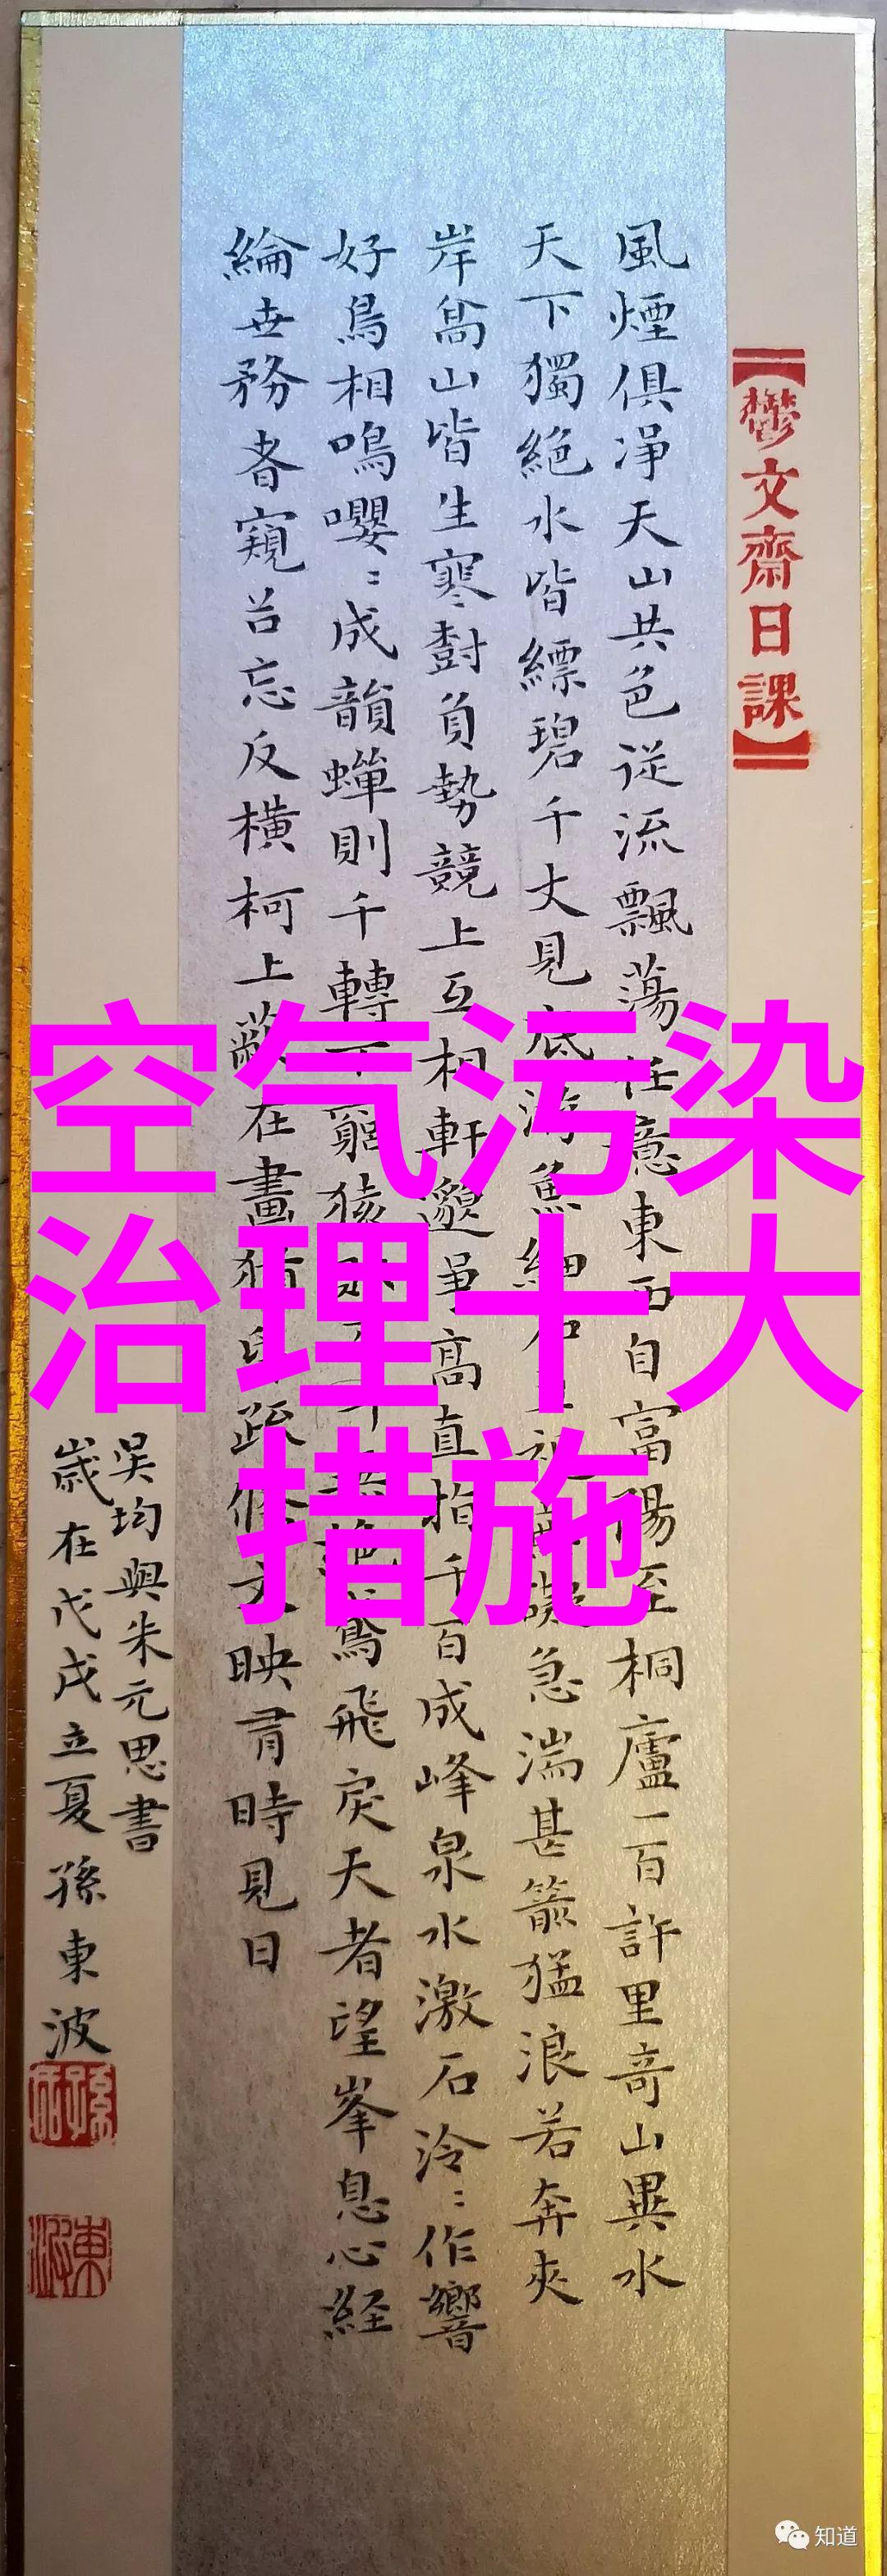 空气污染
治理十大
措施
【鬱文齋日課】
風煙俱淨天山共色從流飄蕩任意東西自富陽至桐廬一百許里奇山異水
天下獨絕水皆縹碧千丈見底游魚細石視無礙急湍甚箭猛浪若奔夾
岸高山皆生寒樹負勢競上互相軒邈爭高直指千百成峰泉水激石泠〻作響
好鳥相鳴嚶〻成韻蟬則千轉不窮猿則無絕鳶飛戾天者望峯息心経
綸世務者窺谷忘反橫柯上蔽在晝猶昏疏條交映有時見日
吳均與朱元思書
歲在戊戌立夏孫東波
知道